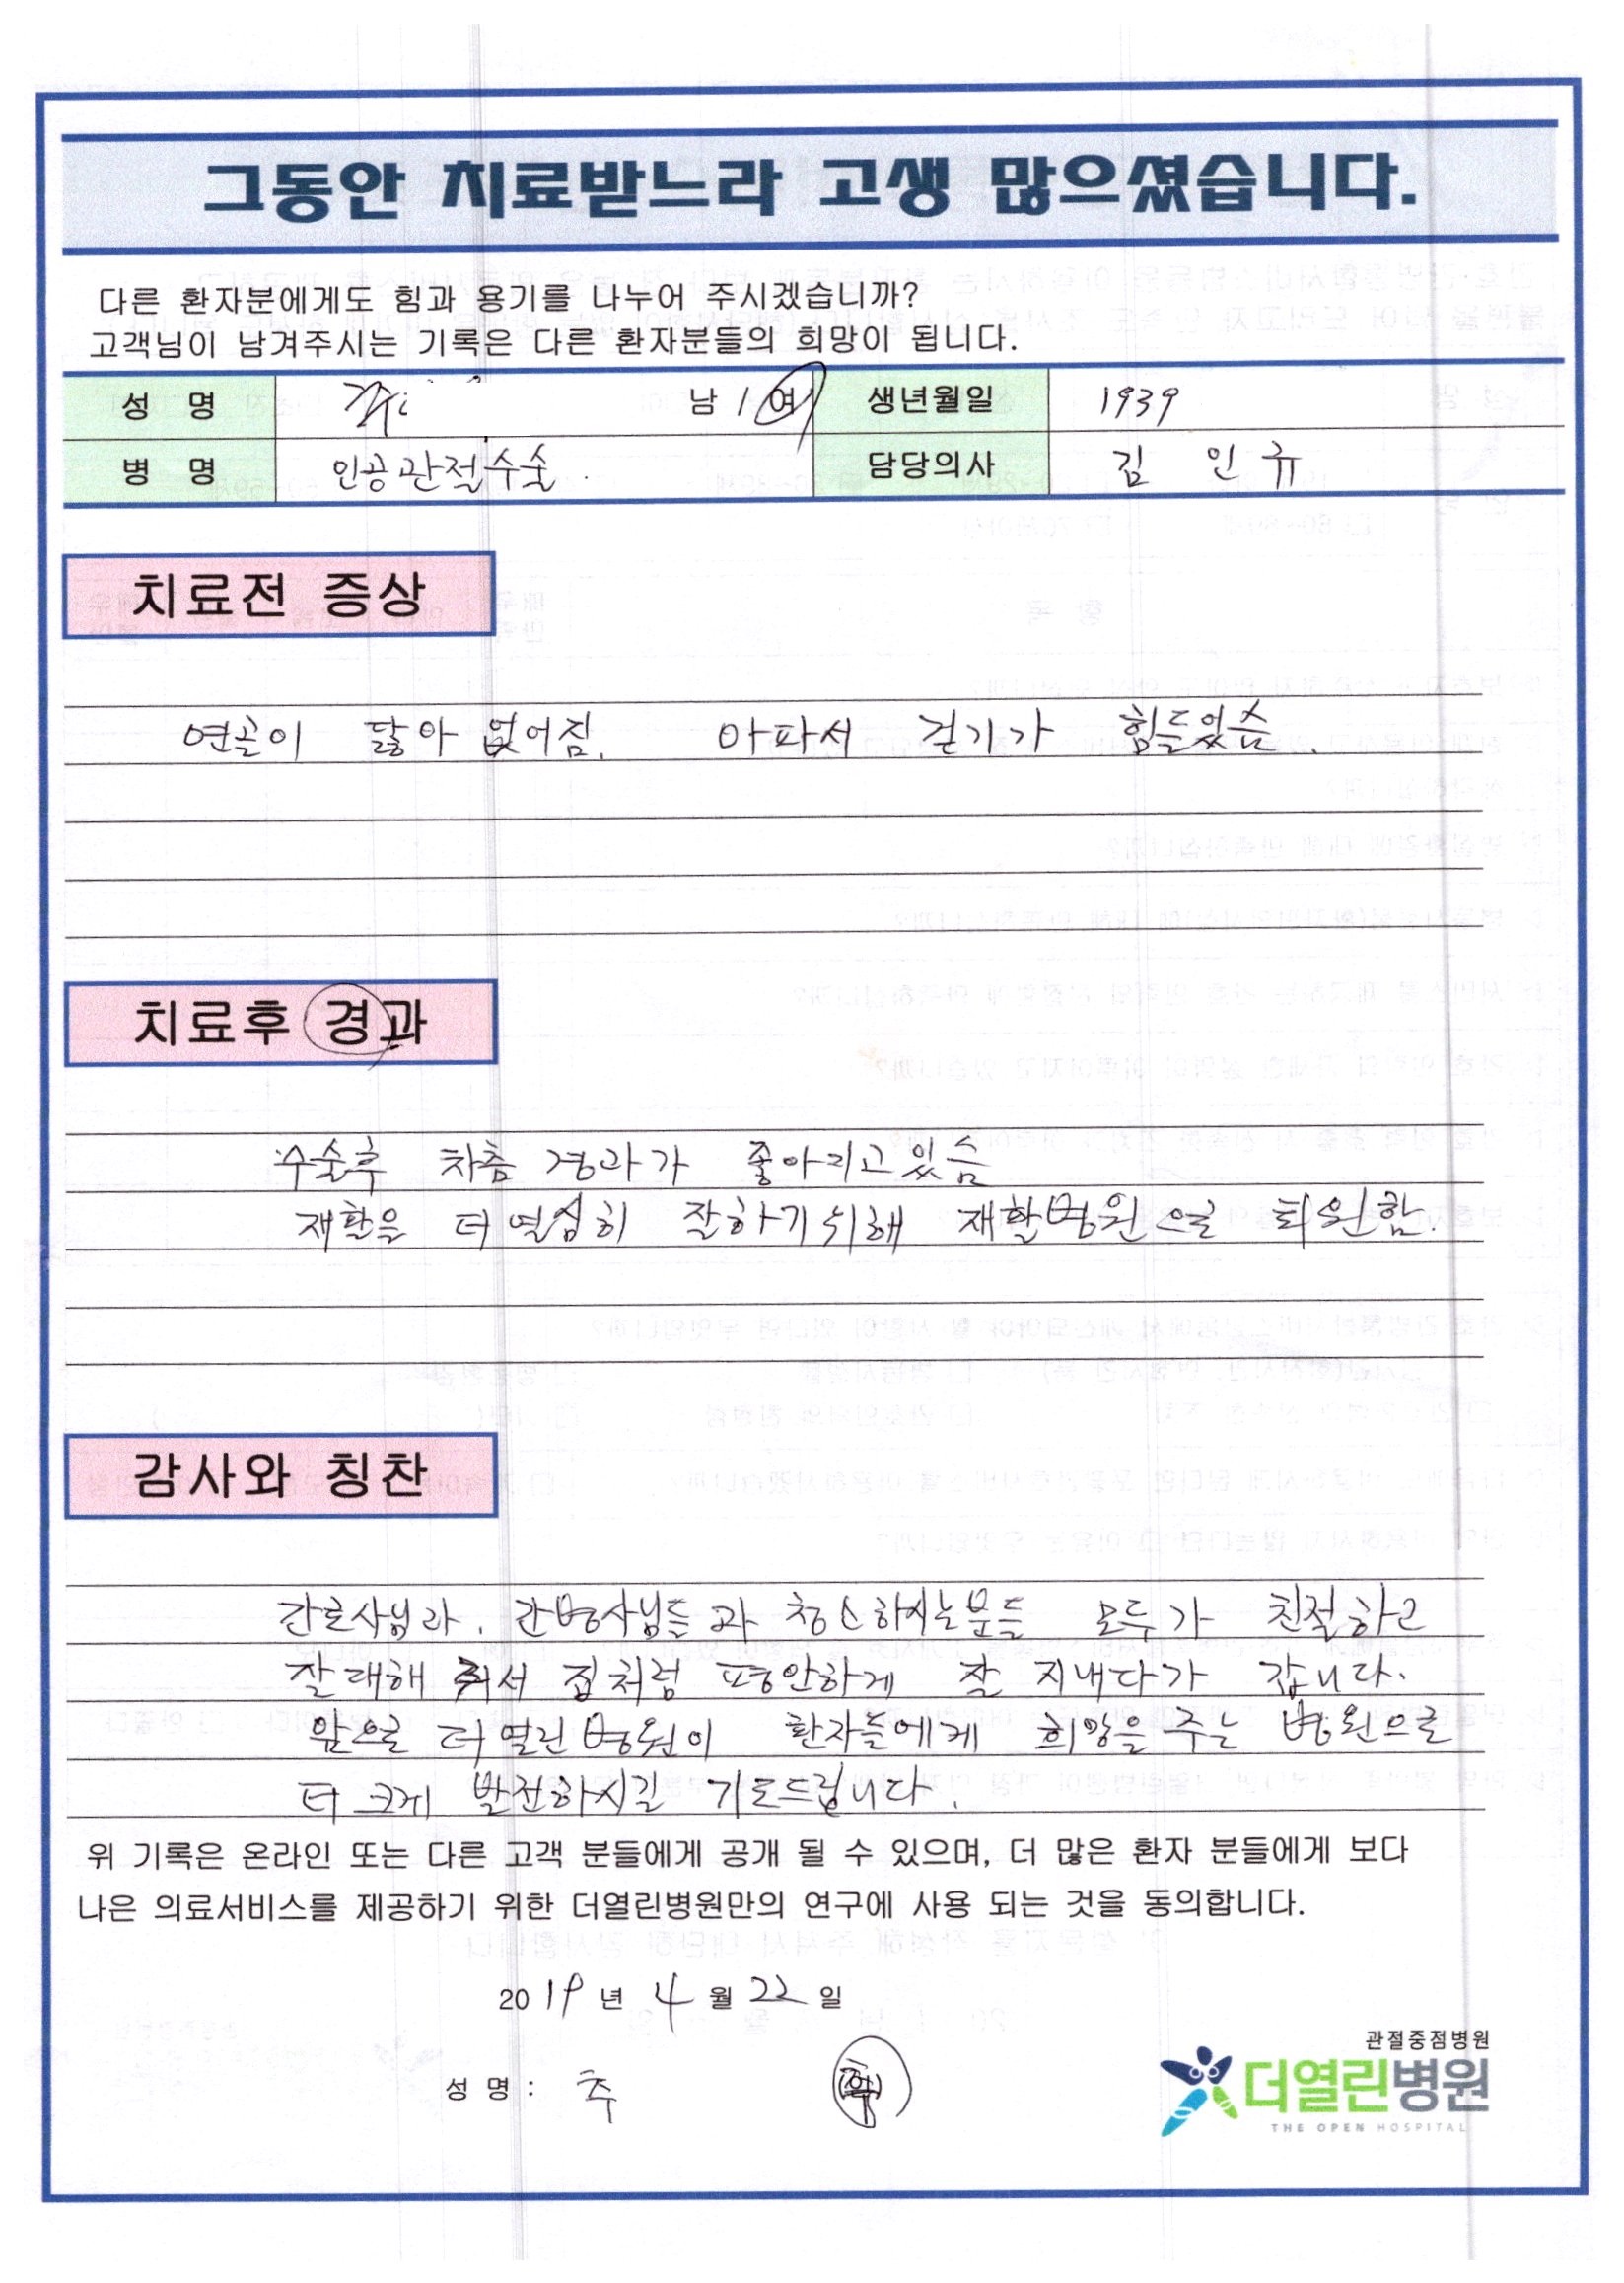 그동안 치료받느라 고생 많으셨습니다.
다른 환자분에게도 힘과 용기를 나누어 주시겠습니까?
고객님이 남겨주시는 기록은 다른 환자분들의 희망이 됩니다.
성 명 남 / 여 생년월일 1939
병 명 인공관절수술. 담당의사 김 인 규
치료전 증상
연골이 닳아 없어짐. 아파서 걷기가 힘들었슴.
치료후 경과
수술후 차츰 경과가 좋아지고 있슴
재활을 더 열심히 잘하기위해 재활병원으로 퇴원함.
감사와 칭찬
간호사님과, 간병사님들과 청소하시는분들 모두가 친절하고
잘 대해 줘서 집처럼 평안하게 잘 지내다가 갑니다.
앞으로 더열린병원이 환자들에게 희망을 주는 병원으로
더 크게 발전하시길 기도드립니다.
위 기록은 온라인 또는 다른 고객 분들에게 공개 될 수 있으며, 더 많은 환자 분들에게 보다
나은 의료서비스를 제공하기 위한 더열린병원만의 연구에 사용 되는 것을 동의합니다.
2019 년 4 월 22 일
관절중점병원
성 명 : 추
더열린병원
THE OPEN HOSPITAL